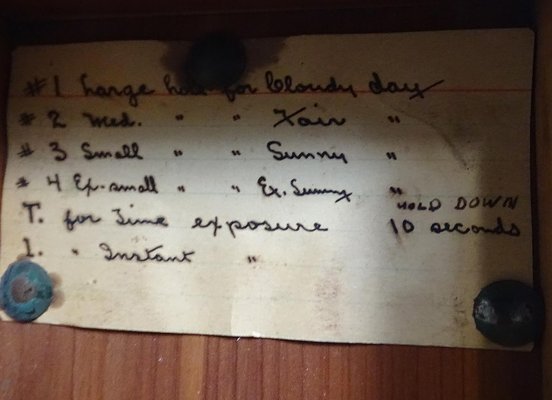 # 1 Large hole for Cloudy day
# 2 Med. " " Fair "
# 3 Small " " Sunny "
# 4 Ex-small " " Ex. Sunny "
T. for Time exposure HOLD DOWN 10 seconds
I. " Instant "